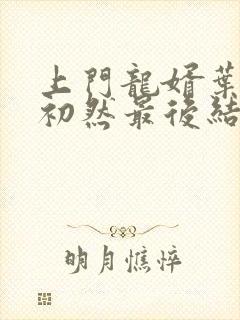 上門龍婿葉
初然最後結
明月憔悴